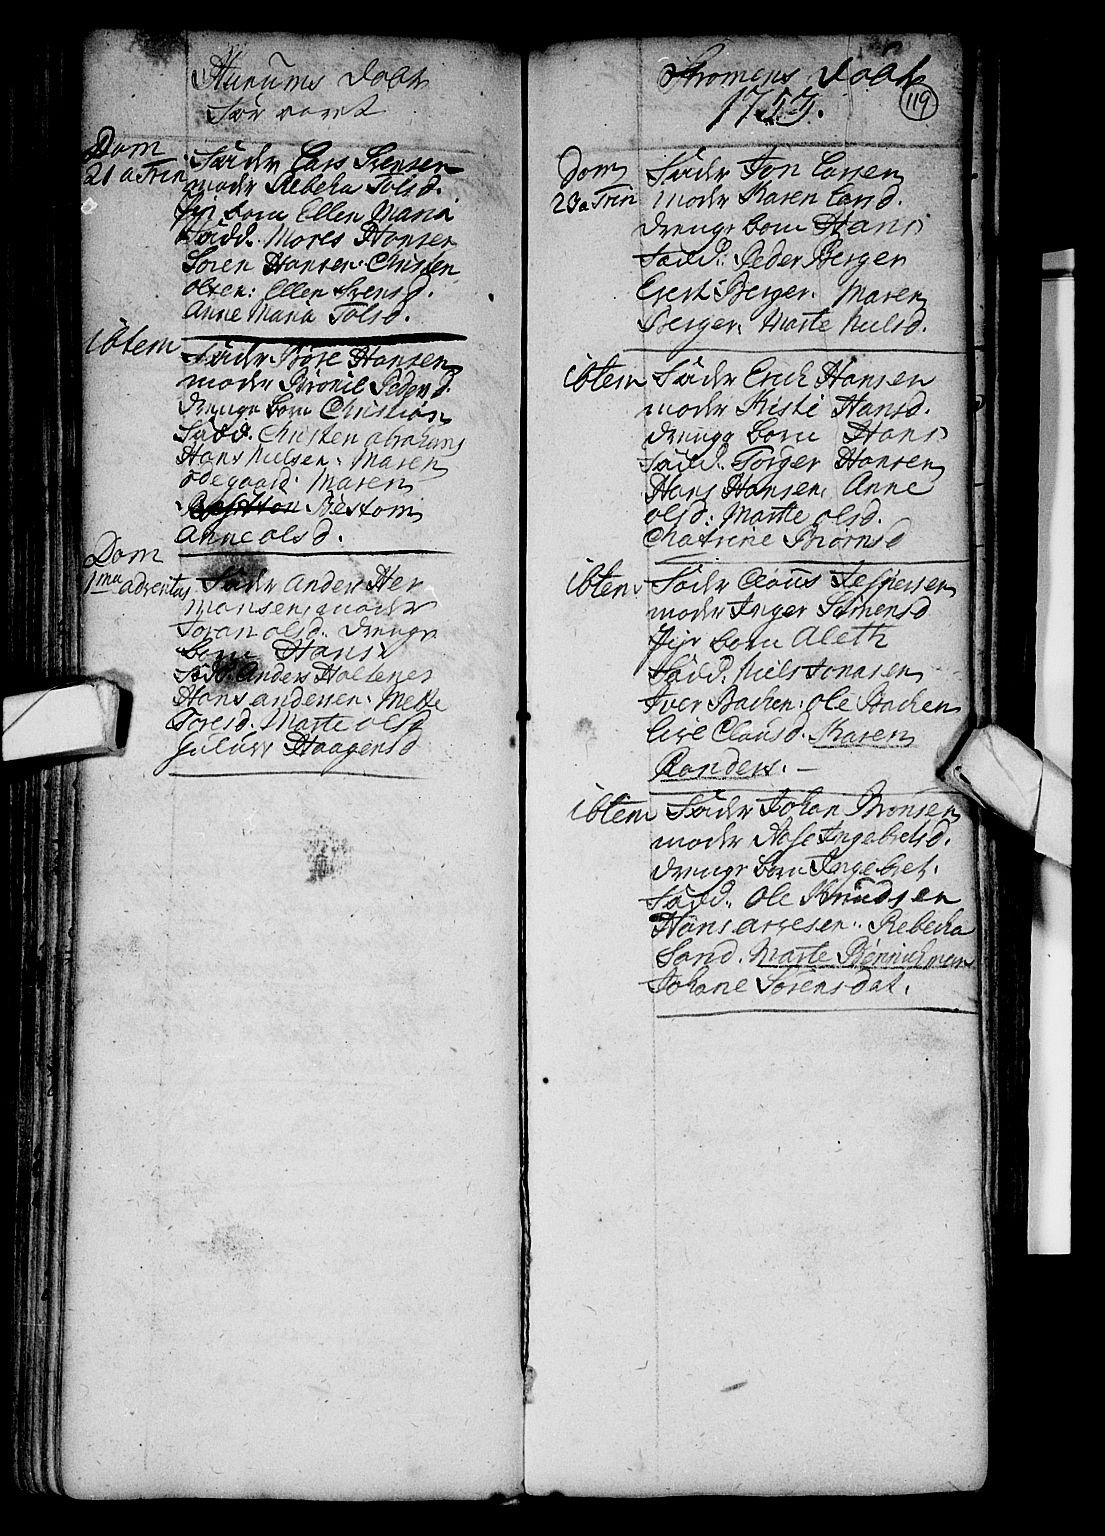 Hurums Daab
før aaret
Dom
21 a Trin
Fader Lars Svensen
moder Rebecka Tolsd.
pige barn Ellen Maria
Fadd. Mores Hansen
Søren Hansen. Christen
olsen: Ellen Svensd.
Anne Maria Tolsd.
ibtem
Fader Børe Hansen
moder Bronil Pedersd.
drenge barn Christian
Fadd. Christen abrahams
Hans Nielsen. Maren
ødegaard. Maren
Bestom
Anne olsd.
Dom
1ma adventus
Fader Anders Her
mansen, moder
Joran olsd. drenge
barn Hans
Fadd. Anders Holtenes
Hans andersen. Mette
Toresd. Marte olsd
Haagensd
Stromens Daab
119
1753.
Dom
23 a Trin
Fader Jon Larsen
moder Karen Larsd.
drenge barn Hans
Fadd: Peder Berger
Evert Berger. Maren
Berger. Marte Nielsd.
ibtem
Fader Erich Hansen
moder Kisti Hansd.
drenge barn Hans
Fadd. Torger Hansen
Hans Hansen, Anne
olsd: Marte olsd.
Chatrine Biørnsd
ibtem
Fader Claus Jespersen
moder Inger Simensd
pige barn Aleth
Fadd. Niels Jonasen
Iver Bachen. Ole Bachen
Lise Clausd. Karen
Randers. —
ibtem
Fader Johan Bronsen
moder Aase Ingebretsd.
drenge barn Ingebret.
Fadd. Ole Knudsen
Hans arvesen. Rebecka
Sand. Marte Bennichmen
Johane Sørensdat.